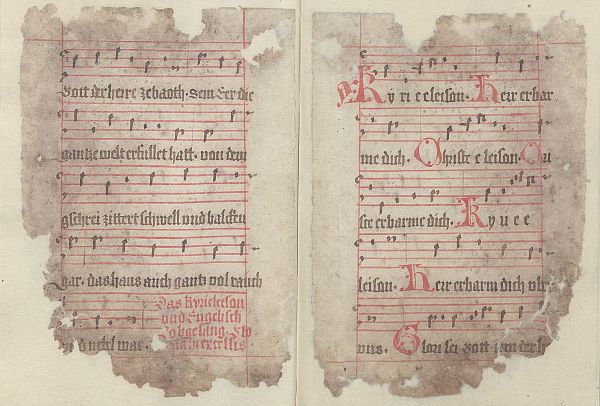 Gott der herre zebaoth. Sein Eer die
gantze welt erfullet hatt. von dem
gschrei zittert schwell vnd balcken
gar. das haus auch gantz vol rauch
vnd nebel war.
Das Kyrieleison
vnd Engelisch
Lobgesang.
Kyri e eleison. Herr erbar
me dich. Christe e leison.
ste erbarme dich. Kyri e e
leison. Herr erbarm dich vber
vns. Glori sei Gott inn der h